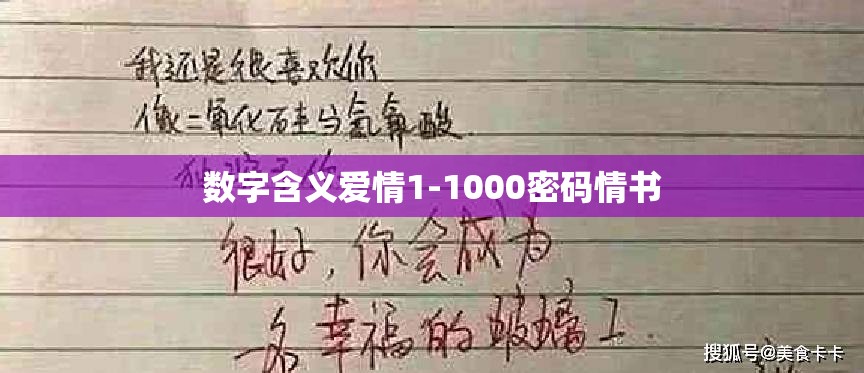 我还是很喜欢你
像二氧化硅与氢氟酸
数字含义爱情1-1000密码情书
很好,你会成为
一名幸福的玻璃工.
搜狐号@美食卡卡